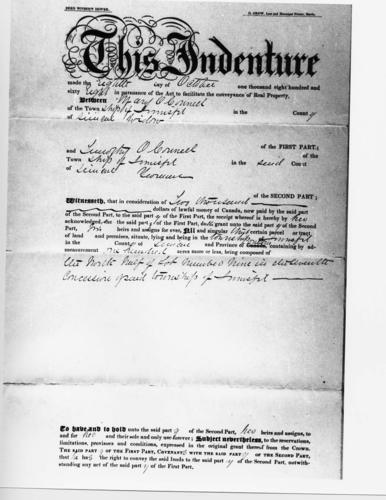 DEED WITHOUT DOWER.
This Indenture
made the eighth day of October one thousand eight hundred and
sixty eight in pursuance of the Act to facilitate the conveyance of Real Property,
Between Mary O Connell
of the Township of Innisfil in the County
of Simcoe Widow
of the FIRST PART;
and Timothy O Connell of the
Township of Innisfil in the said County
of Simcoe Yeoman
of the SECOND PART;
Witnesseth, that in consideration of Two thousand
dollars of lawful money of Canada, now paid by the said part
of the Second Part, to the said part y of the First Part, the receipt whereof is hereby by her
acknowledged, she the said part y of the First Part, doth grant unto the said part y of the Second
Part, his heirs and assigns for ever, All and singular that certain parcel or tract
of land and premises, situate, lying and being in the township of Innisfil
in the County of Simcoe and Province of Canada, containing by ad-
measurement one hundred acres more or less, being composed of
the North Half of Lot Number Nine in the Seventh
Concession of said township of Innisfil
To have and to hold unto the said part y of the Second Part, heirs and assigns, to
and for and their sole and only use forever; Subject nevertheless, to the reservations,
limitations, provisoes and conditions, expressed in the original grant thereof from the Crown.
The said part y of the FIRST PART, Covenants with the said part y of the SECOND PART,
that he has the right to convey the said lands to the said part y of the Second Part, notwith-
standing any act of the said part y of the First Part.